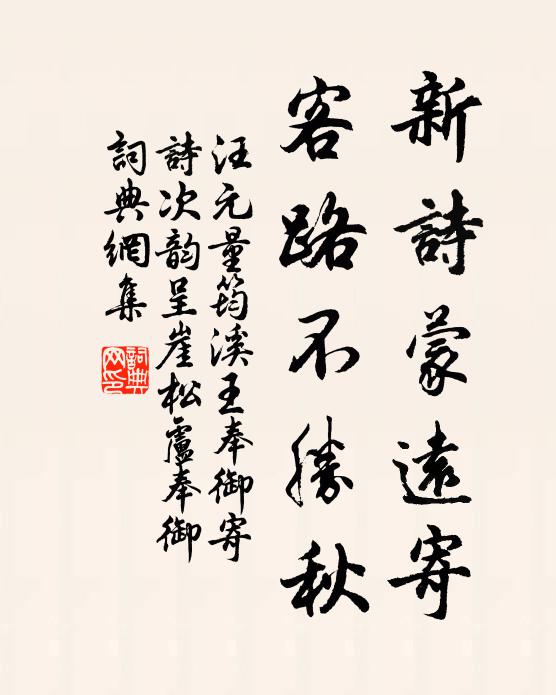 新詩蒙遠寄
客路不勝秋
汪元量筠溪王奉御寄
詩次韵呈崖松盧奉御
詞典網集
詞典網印